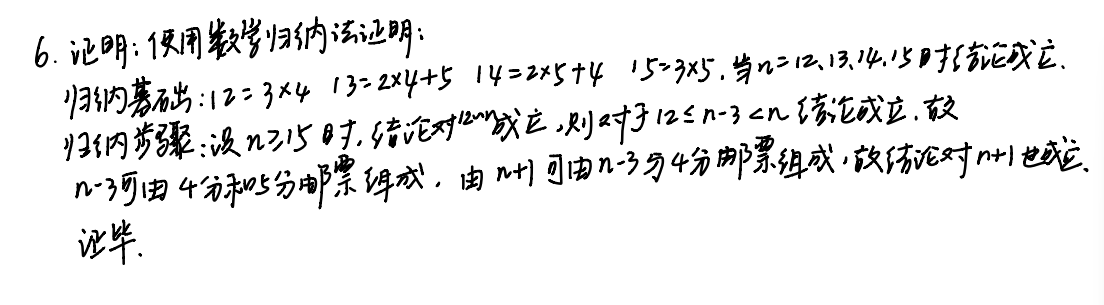 6. 证明:使用数学归纳法证明:
归纳基础:12=3×4 13=2×4+5 14=2×5+4 15=3×5.当n=12、13、14、15时结论成立.
归纳步骤:设n≥15时,结论对12~n成立,则对于12≤n-3<n结论成立.故
n-3可由4分和5分邮票组成,由n+1可由n-3与4分邮票组成,故结论对n+1也成立.
证毕.